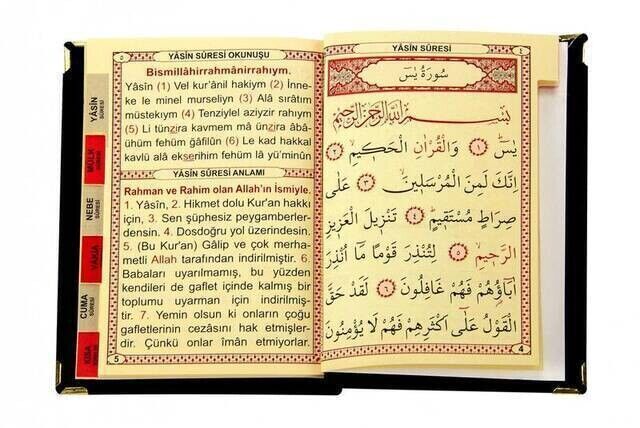 YÂSİN SÛRESİ
MÜLK
NEBE
SÛRESİ
VAKIA
CUMA
SÛRESİ
KISA
٥
YÂSÎN SÛRESİ OKUNUŞU
Bismillâhirrahmânirrahıym.
Yâsîn (1) Vel kur'ânil hakiym (2) İnne-
ke le minel murseliyn (3) Alâ sırâtım
müstekıym (4) Tenziylel aziyzir rahıym
(5) Li tünzira kavmem mâ ünzira âbâ-
ühüm fehüm ğâfilûn (6) Le kad hakkal
kavlü alâ ekserihim fehüm lâ yü'minûn
YÂSÎN SÛRESİ ANLAMI
Rahman ve Rahim olan Allah'ın İsmiyle.
1. Yâsîn, 2. Hikmet dolu Kur'an hakkı
için, 3. Sen şüphesiz peygamberler-
densin. 4. Dosdoğru yol üzerindesin.
5. (Bu Kur'an) Gâlip ve çok merha-
metli Allah tarafından indirilmiştir. 6.
Babaları uyarılmamış, bu yüzden
kendileri de gaflet içinde kalmış bir
toplumu uyarman için indirilmiş-
tir. 7. Yemin olsun ki onların çoğu
gafletlerinin cezâsını hak etmişler-
dir. Çünkü onlar îmân etmiyorlar.
5
YÂSÎN SÛRESİ
٤
سُورَةُ يٰسٓ
بِسْمِ اللّٰهِ الرَّحْمٰنِ الرَّحِيمِ
يٰسٓ ﴿١﴾ وَالْقُرْاٰنِ الْحَكِيمِ ﴿٢﴾
اِنَّكَ لَمِنَ الْمُرْسَلِينَ ﴿٣﴾ عَلٰى
صِرَاطٍ مُسْتَقِيمٍ ﴿٤﴾ تَنْزِيلَ الْعَزِيزِ
الرَّحِيمِ ﴿٥﴾ لِتُنْذِرَ قَوْمًا مَٓا اُنْذِرَ
اٰبَٓاؤُهُمْ فَهُمْ غَافِلُونَ ﴿٦﴾ لَقَدْ حَقَّ
الْقَوْلُ عَلٰٓى اَكْثَرِهِمْ فَهُمْ لَا يُؤْمِنُونَ
4